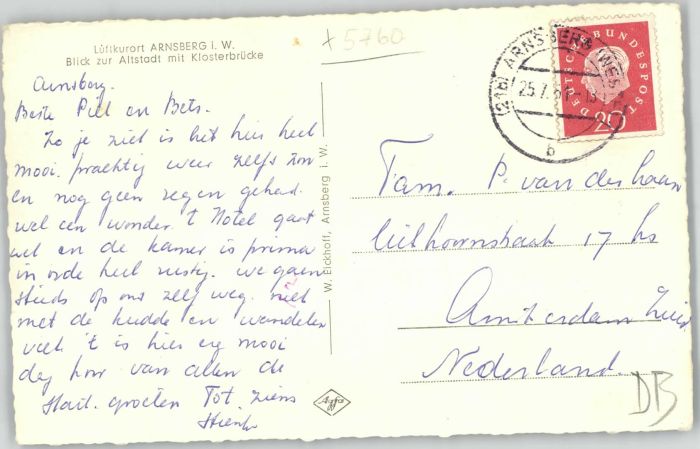 Luftkurort ARNSBERG i. W.
Blick zur Altstadt mit Klosterbrücke
x 5760
Arnsberg.
Beste Piel en Bets.
Zo je ziet is het hier heel
mooi. prachtig weer zelfs zon
en nog geen regen gehad.
wel een wonder. 't Hotel gaat
wel en de kamer is prima
in orde heel rustig. we gaan
steeds op ons zelf weg. niet
met de kudde en wandelen
veel 't is hier erg mooi
dag hoor van allen de
groeten Tot ziens
W. Eickhoff, Arnsberg i. W.
Agfa
(21b) ARNSBERG (WESTF)
25.7.61
b
DEUTSCHE BUNDESPOST
20
Fam. P. van der Haar
17 hs
Amsterdam Zuid
Nederland.
DB